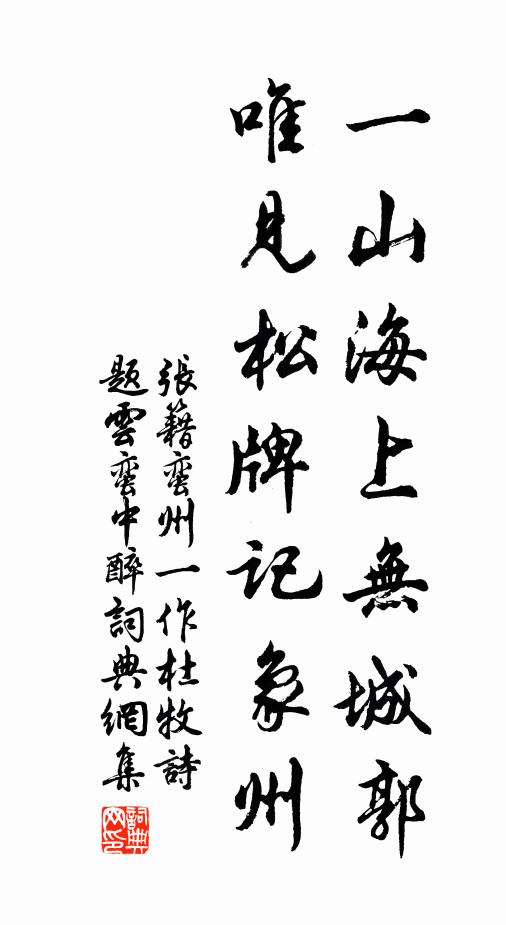 一山海上無城郭
唯見松牌記象州
張籍蛮州一作杜牧詩
題雲蛮中醉詞典網集
詞典
网印